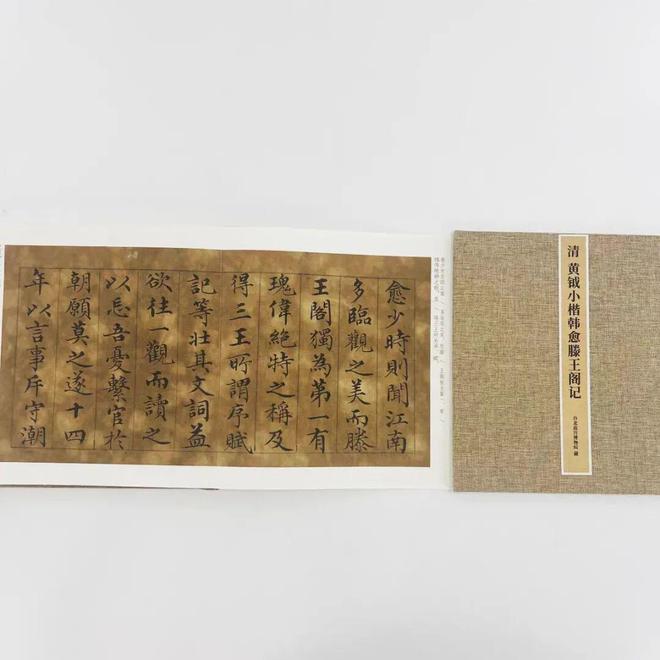 清 黄钺小楷韩愈滕王阁记
台北故宫博物院 藏
愈少時則聞江南
多臨觀之美而滕
王閣獨為第一有
瑰偉絶特之稱及
得三王所謂序賦
記等壯其文詞益
欲往一觀而讀之
以忘吾憂繫官於
朝願莫之遂十四
年以言事斥守潮